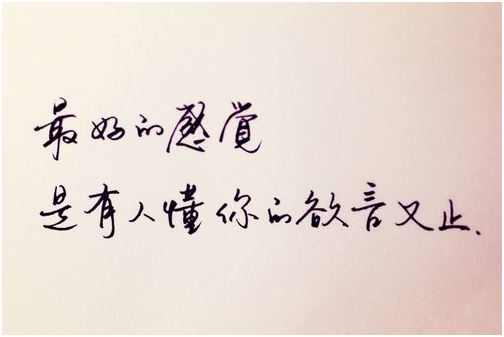 最好的感覺
是有人懂你的欲言又止.